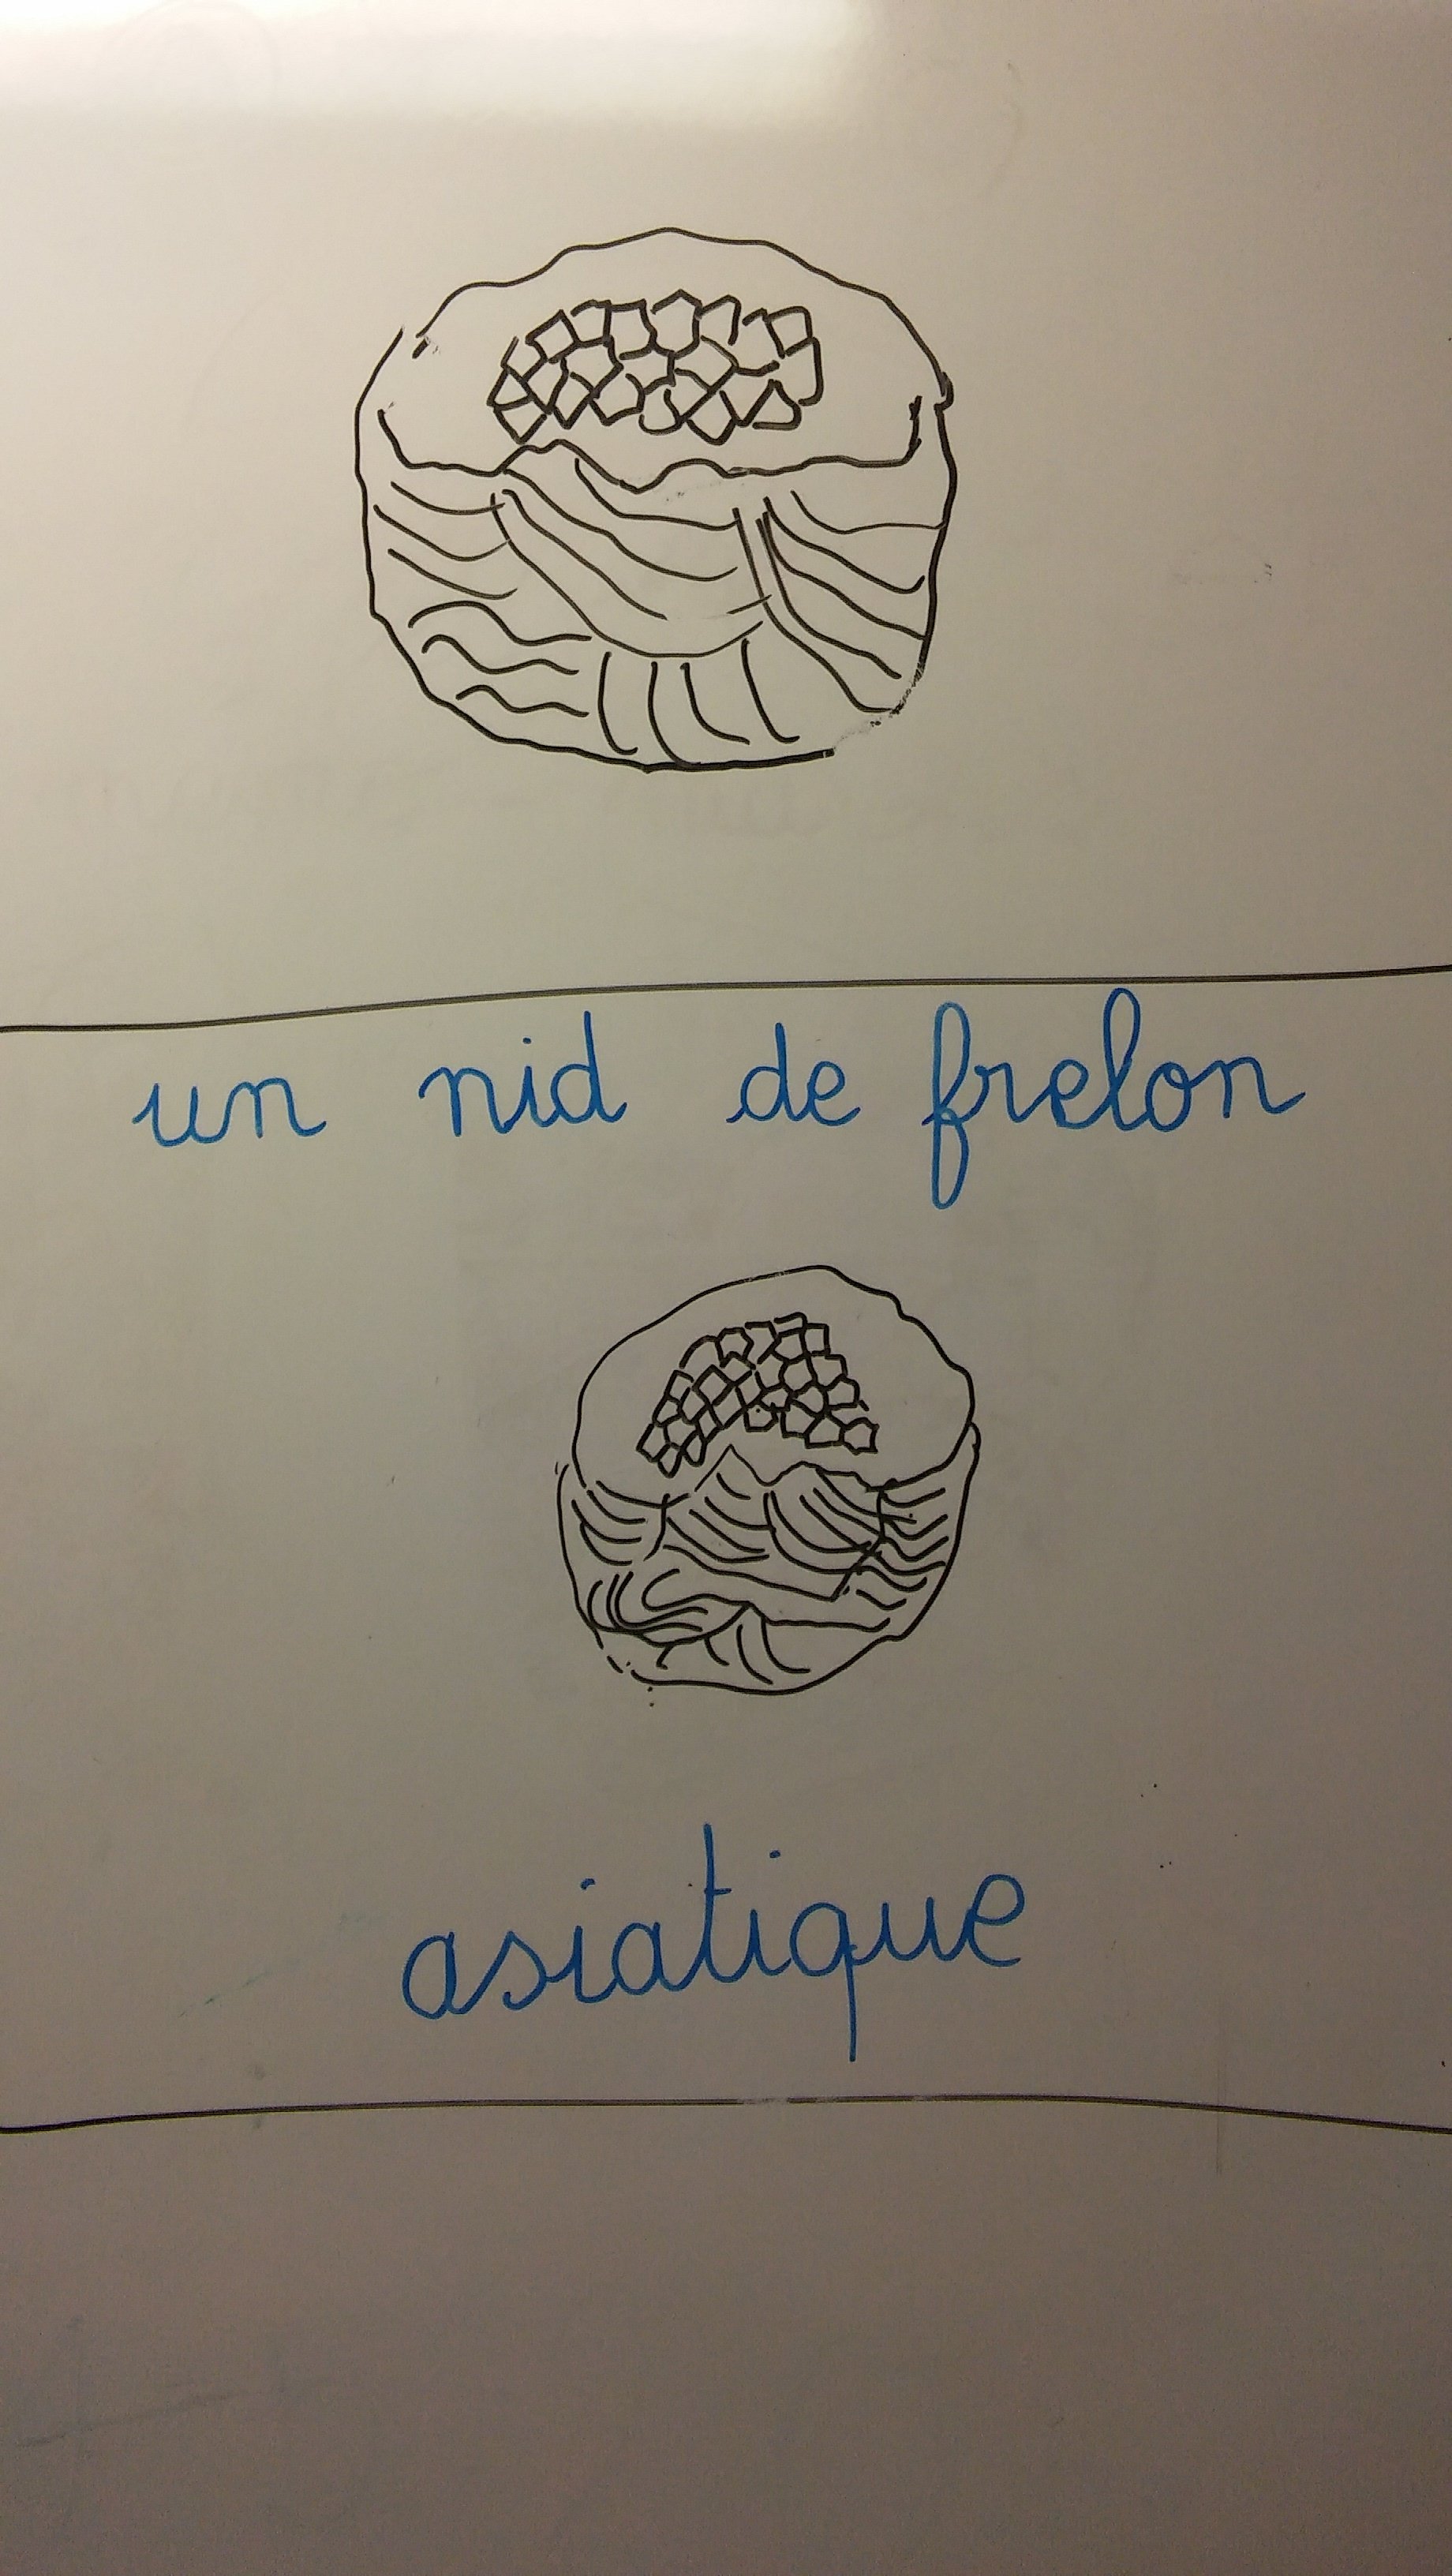 un nid de frelon
asiatique